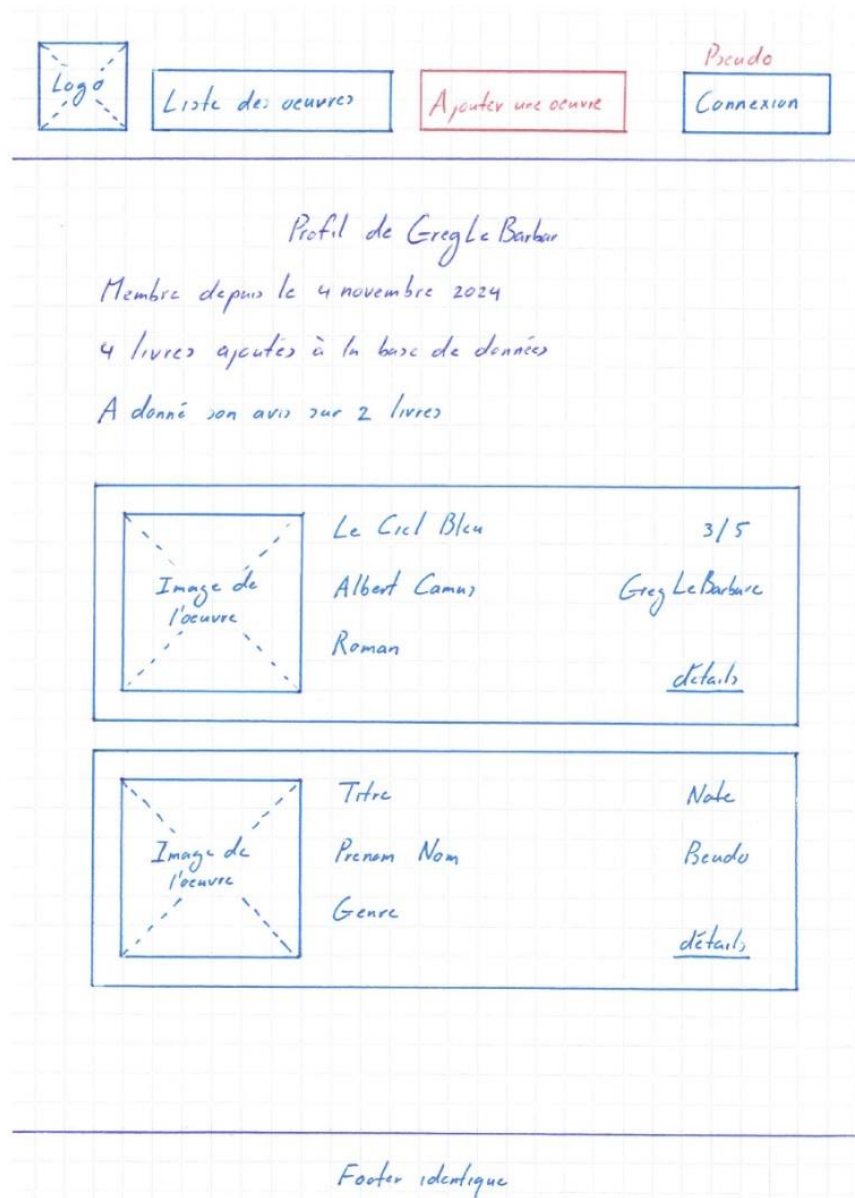 Pseudo
Logo
Liste des oeuvres
Ajouter une oeuvre
Connexion
Profil de GregLeBarbar
Membre depuis le 4 novembre 2024
4 livres ajoutés à la base de données
A donné son avis sur 2 livres
Image de
l'oeuvre
Le Ciel Bleu
3/5
Albert Camus
GregLeBarbare
Roman
détails
Image de
l'oeuvre
Titre
Note
Prenom Nom
Pseudo
Genre
détails
Footer identique